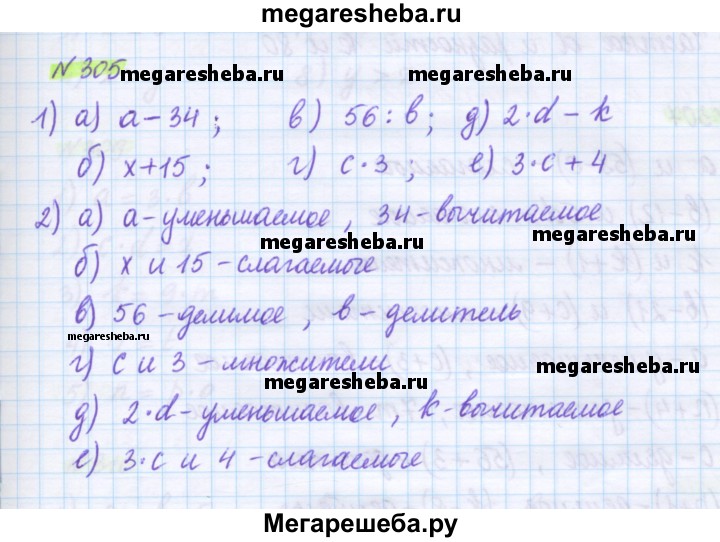 megaresheba.ru
№ 305
megaresheba.ru megaresheba.ru
1) а) a - 34 ; в) 56 : b ; д) 2 · d - k
б) x + 15 ; г) c · 3 , е) 3 · c + 4
2) а) a - уменьшаемое , 34 - вычитаемое
megaresheba.ru megaresheba.ru
б) x и 15 - слагаемые
в) 56 - делимое , в - делитель
megaresheba.ru
г) c и 3 - множители
megaresheba.ru megaresheba.ru
д) 2 · d - уменьшаемое , k - вычитаемое
е) 3 · c и 4 - слагаемые
Мегарешеба.ру